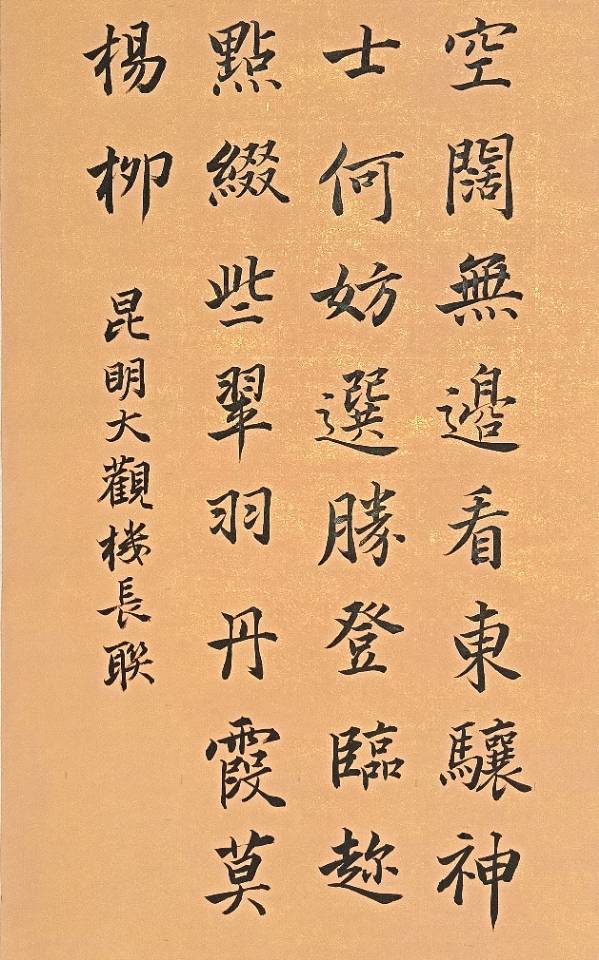 空闊無邊看東驤神
士何妨選勝登臨趂
點綴些翠羽丹霞莫
楊柳
昆明大觀樓長聯